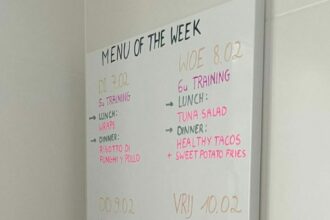 MENU OF THE WEEK
DI 7.02
6u TRAINING
→ LUNCH:
WRAPS
→ DINNER:
RISOTTO DI
FUNGHI Y POLLO
WOE 8.02
6u TRAINING
→ LUNCH:
TUNA SALAD
→ DINNER:
HEALTHY TACOS
+ SWEET POTATO FRIES
DO 9.02
VRIJ 10.02